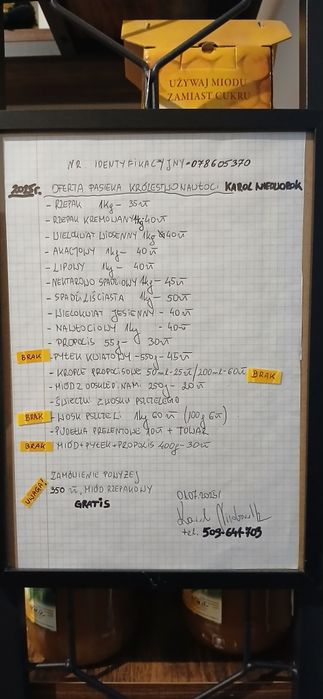 UŻYWAJ MIODU
ZAMIAST CUKRU
NR IDENTYFIKACYJNY - 078605370
2025r. OFERTA PASIEKA KRÓLESTWO NAWŁOCI KAROL
- RZEPAK 1kg - 35zł
- RZEPAK KREMOWANY 1kg 40zł
- WIELOKWIAT WIOSENNY 1kg 40zł
- AKACJOWY 1kg - 40zł
- LIPOWY 1kg - 40zł
- NEKTAROWO SPADZIOWY 1kg - 45zł
- SPADŹ LIŚCIASTA 1kg - 50zł
- WIELOKWIAT JESIENNY - 40zł
- NAWŁOCIOWY 1kg - 40zł
- PROPOLIS 55g - 30zł
BRAK - PYŁEK KWIATOWY - 550g - 45zł
- KROPLE PROPOLISOWE 50ml - 25zł/200ml - 60zł BRAK
- MIÓD Z DODATKAMI 250g - 20zł
- ŚWIECZKI Z WOSKU PSZCZELEGO
BRAK - WOSK PSZCZELI 1kg 60zł (100g 6zł)
- PUDEŁKA PREZENTOWE 10zł + TOWAR
BRAK - MIÓD + PYŁEK + PROPOLIS 400g - 30zł
UWAGA! ZAMÓWIENIE POWYŻEJ
350 zł, MIÓD RZEPAKOWY
GRATIS
01.07.2025r
tel. 509-644-703